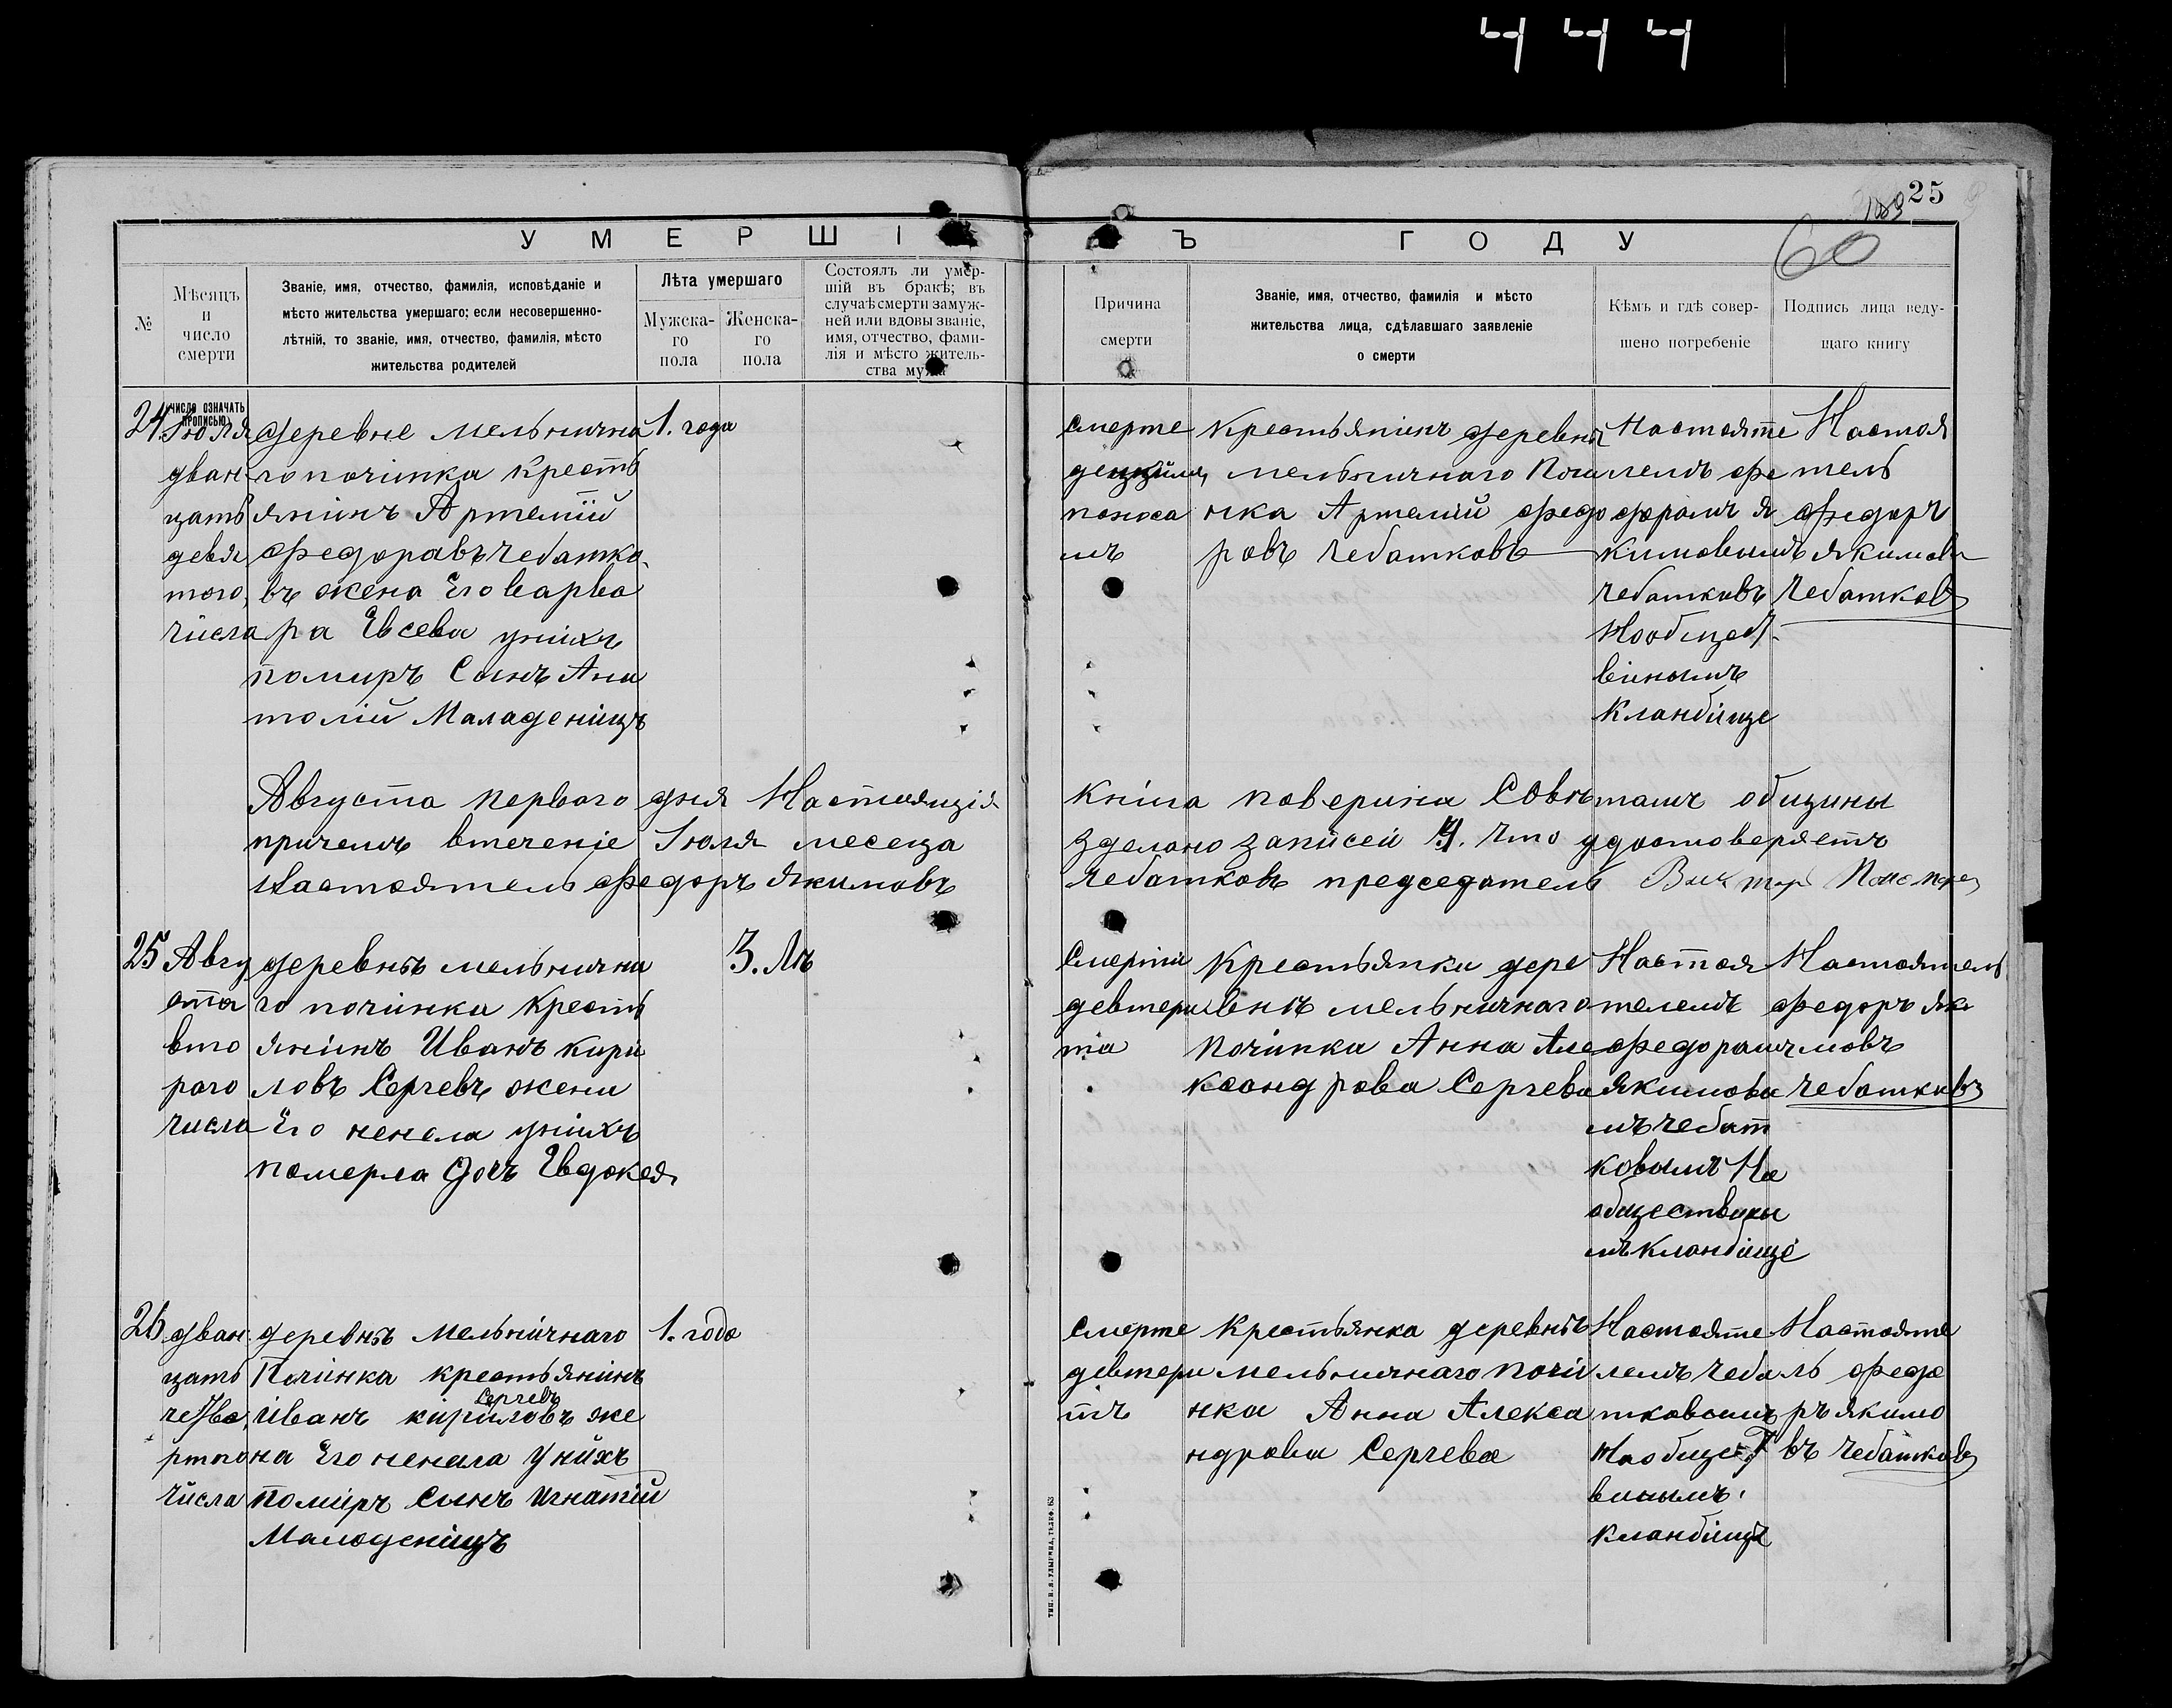 25
60
У М Е Р Ш І Ъ Г О Д У
№
Мѣсяцъ
и
число
смерти
Званіе, имя, отчество, фамилія, исповѣданіе и
мѣсто жительства умершаго; если несовершенно-
лѣтній, то званіе, имя, отчество, фамилія, мѣсто
жительства родителей
Лѣта умершаго
Мужска-
го
пола
Женска-
го
пола
Состоялъ ли умер-
шій въ бракѣ; въ
случаѣ смерти замуж-
ней или вдовы званіе,
имя, отчество, фами-
лія и мѣсто житель-
ства мужа
Причина
смерти
Званіе, имя, отчество, фамилія и мѣсто
жительства лица, сдѣлавшаго заявленіе
о смерти
Кѣмъ и гдѣ совер-
шено погребеніе
Подпись лица веду-
щаго книгу
число означать
прописью
24.
Июля
дван
цать
девя
того,
числа
деревне мельнична
го починка кресть
янинъ Артемий
Федоравъ Чебатко
въ жена Его варва
ра Евсева униихъ
помиръ Сынъ Ана
толий Маладеницъ
1. года
смерте
поноса
мъ
Крестьянинъ деревня
мельничнаго Почи
нка Артемий Федо
ровъ Чебатковъ
Настояте
лемъ Фе
доромъ Я
кимовымъ
Чебатковъ
Наобщест
винымъ
Кланбище
Настоя
тель
Федоръ
Якимовъ
Чебатковъ
Августа первого дня Настоящія
причемъ втечение Июля месеца
Настоятель Федоръ Якимовъ
Книга поверина Совѣтамъ общины
зделано записей 4. что удостоверяетъ
Чебатковъ председатель Виктор
25
Авгу
ста
вто
раго
числа
деревнѣ мельнична
го починка кресть
янинъ Иванъ Кири
ловъ Сергевъ жена
Его ненела униихъ
померла Дочъ Евдокея
3. Лѣ
Смертии
девтери
та
Крестьянки дере
внѣ мельничнаго
починка Анна Але
ксандрова Сергева
Настоя
телемъ
Федорамъ
Якимова
мъ Чебат
ковымъ На
обществены
мъ кланбище
Настоятель
Федоръ Яки
мовъ
Чебатковъ
26
дван
цать
четве
ртого
числа
деревнѣ Мельничнаго
Починка крестьянинъ
Сергевъ
Иванъ кириловъ же
на Его ненела Униихъ
помиръ Сынъ Игнатий
Малоденицъ
1. годо
смерте
девтери
тъ
Крестьянка деревнѣ
мельничнаго почи
нка Анна Алекса
ндрова Сергева
Настояте
лемъ Чеба
тковымъ
Наобщест
винымъ
кланбище
Настояте
ль Федо
ръ Якимо
въ Чебатковъ